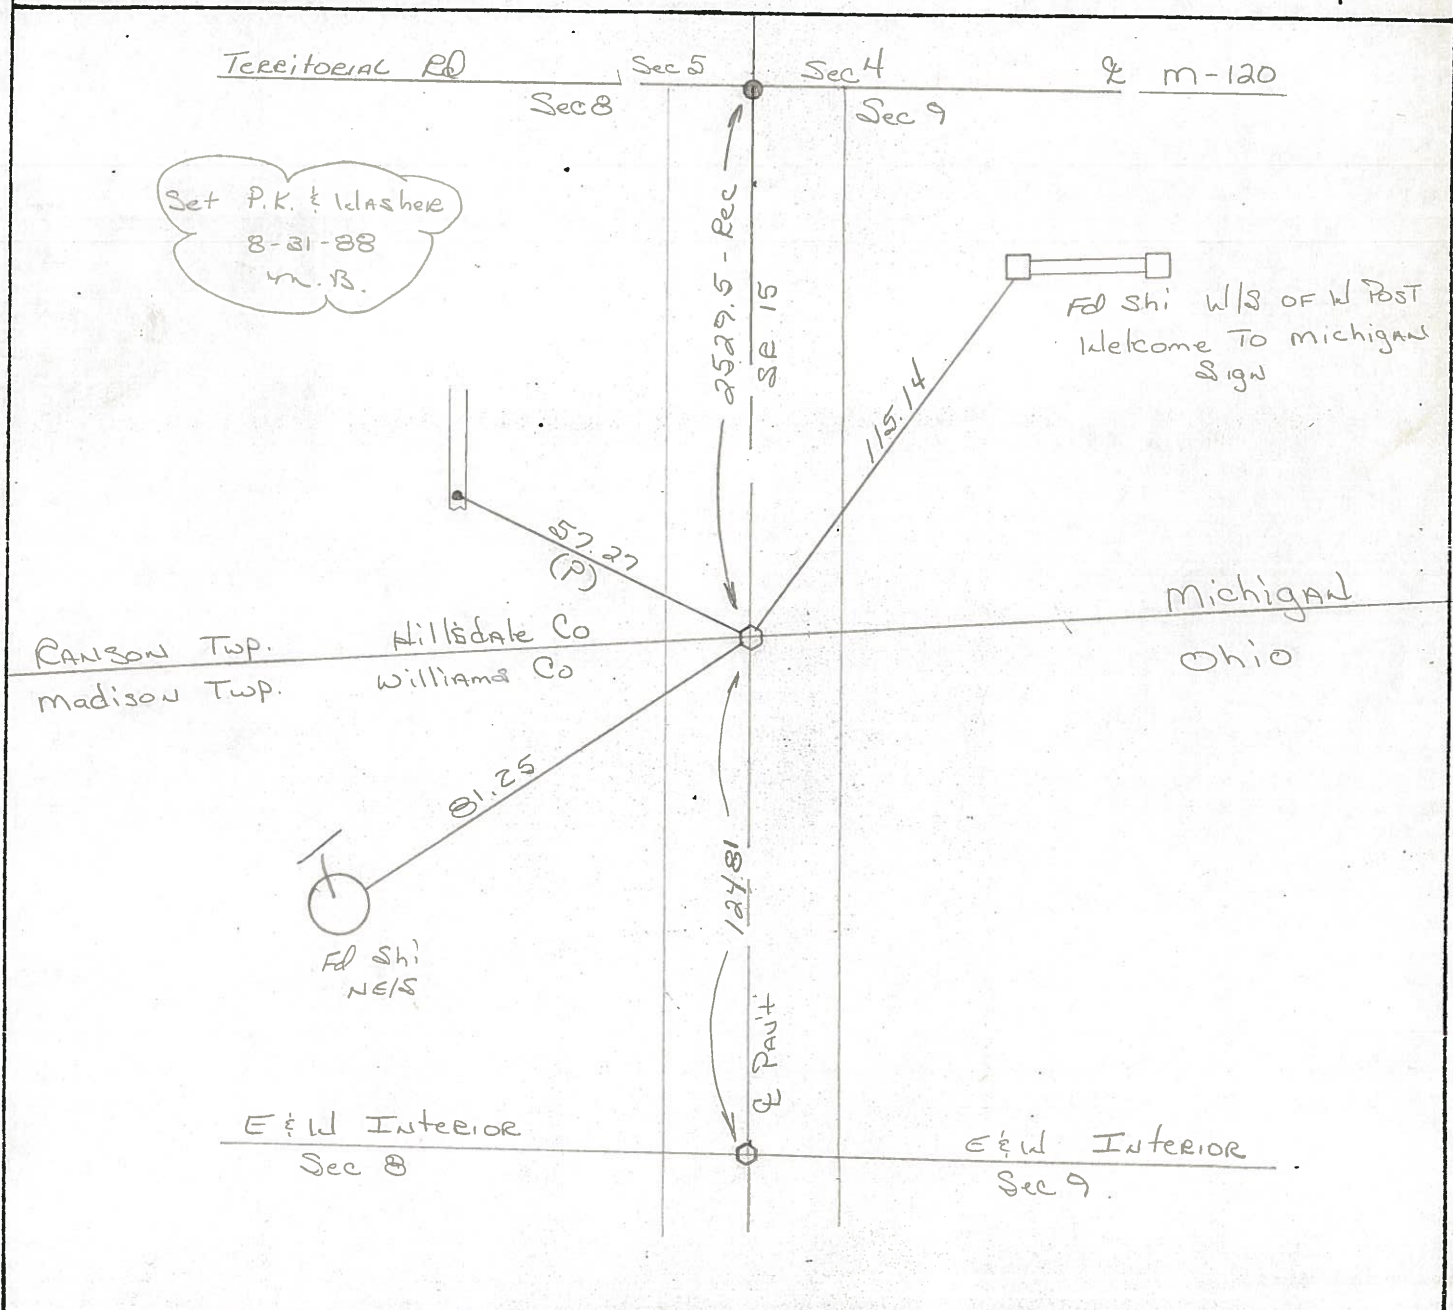 Territorial Rd
Sec 5
Sec 4
℄ M-120
Sec 8
Sec 9
Set P.K. & Washer
8-31-88
M.B.
2529.5 - Rec
SR 15
Fd Shi W/S OF W POST
Welcome To Michigan
Sign
115.14
57.27
(P)
Michigan
Ohio
Ranson Twp. Hillsdale Co
Madison Twp. Williams Co
81.25
124.81
Fd Shi
NE/S
℄ Pav't
E & W Interior
Sec 8
E & W Interior
Sec 9